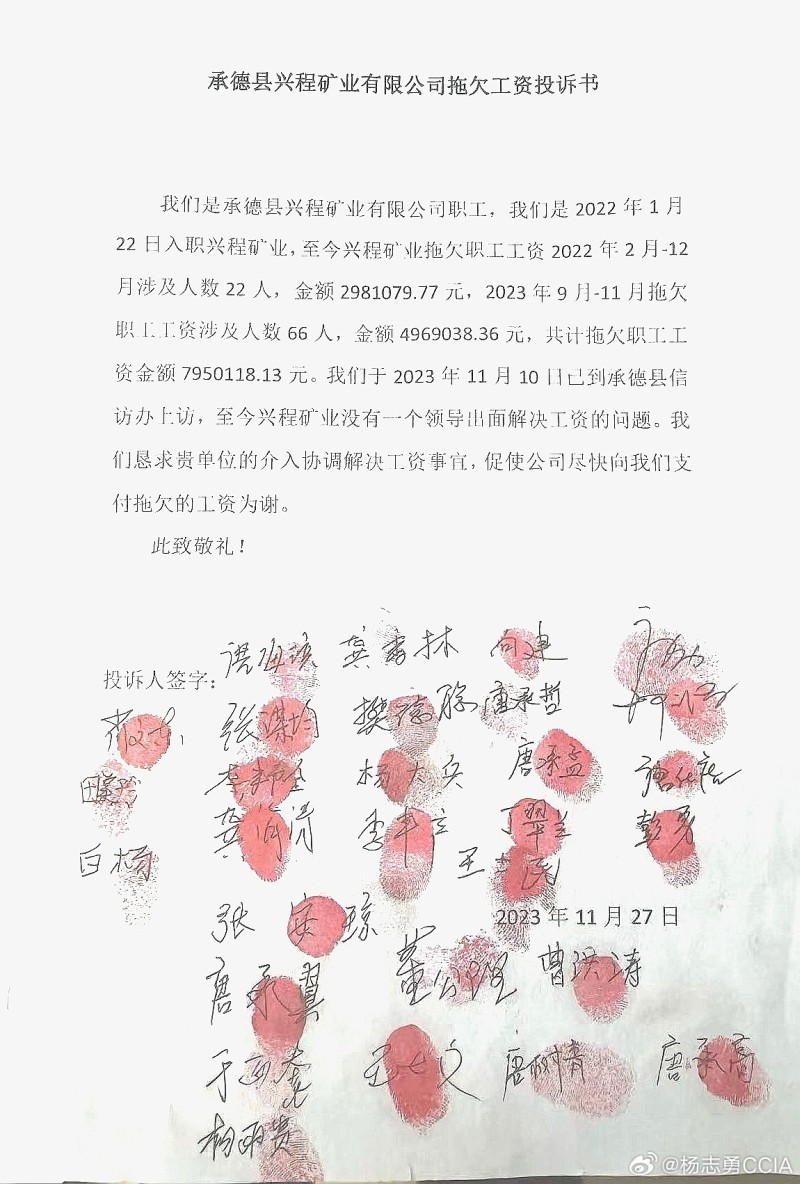 承德县兴程矿业有限公司拖欠工资投诉书
我们是承德县兴程矿业有限公司职工，我们是 2022 年 1 月
22 日入职兴程矿业，至今兴程矿业拖欠职工工资 2022 年 2 月-12
月涉及人数 22 人，金额 2981079.77 元，2023 年 9 月-11 月拖欠
职工工资涉及人数 66 人，金额 4969038.36 元，共计拖欠职工工
资金额 7950118.13 元。我们于 2023 年 11 月 10 日已到承德县信
访办上访，至今兴程矿业没有一个领导出面解决工资的问题。我
们恳求贵单位的介入协调解决工资事宜，促使公司尽快向我们支
付拖欠的工资为谢。
此致敬礼！
向建
投诉人签字：
唐承哲
唐承孟
彭勇
白杨
张 琼
2023 年 11 月 27 日
唐承翼 曹洪涛
唐树清 唐承高
杨雨贵
@杨志勇CCIA